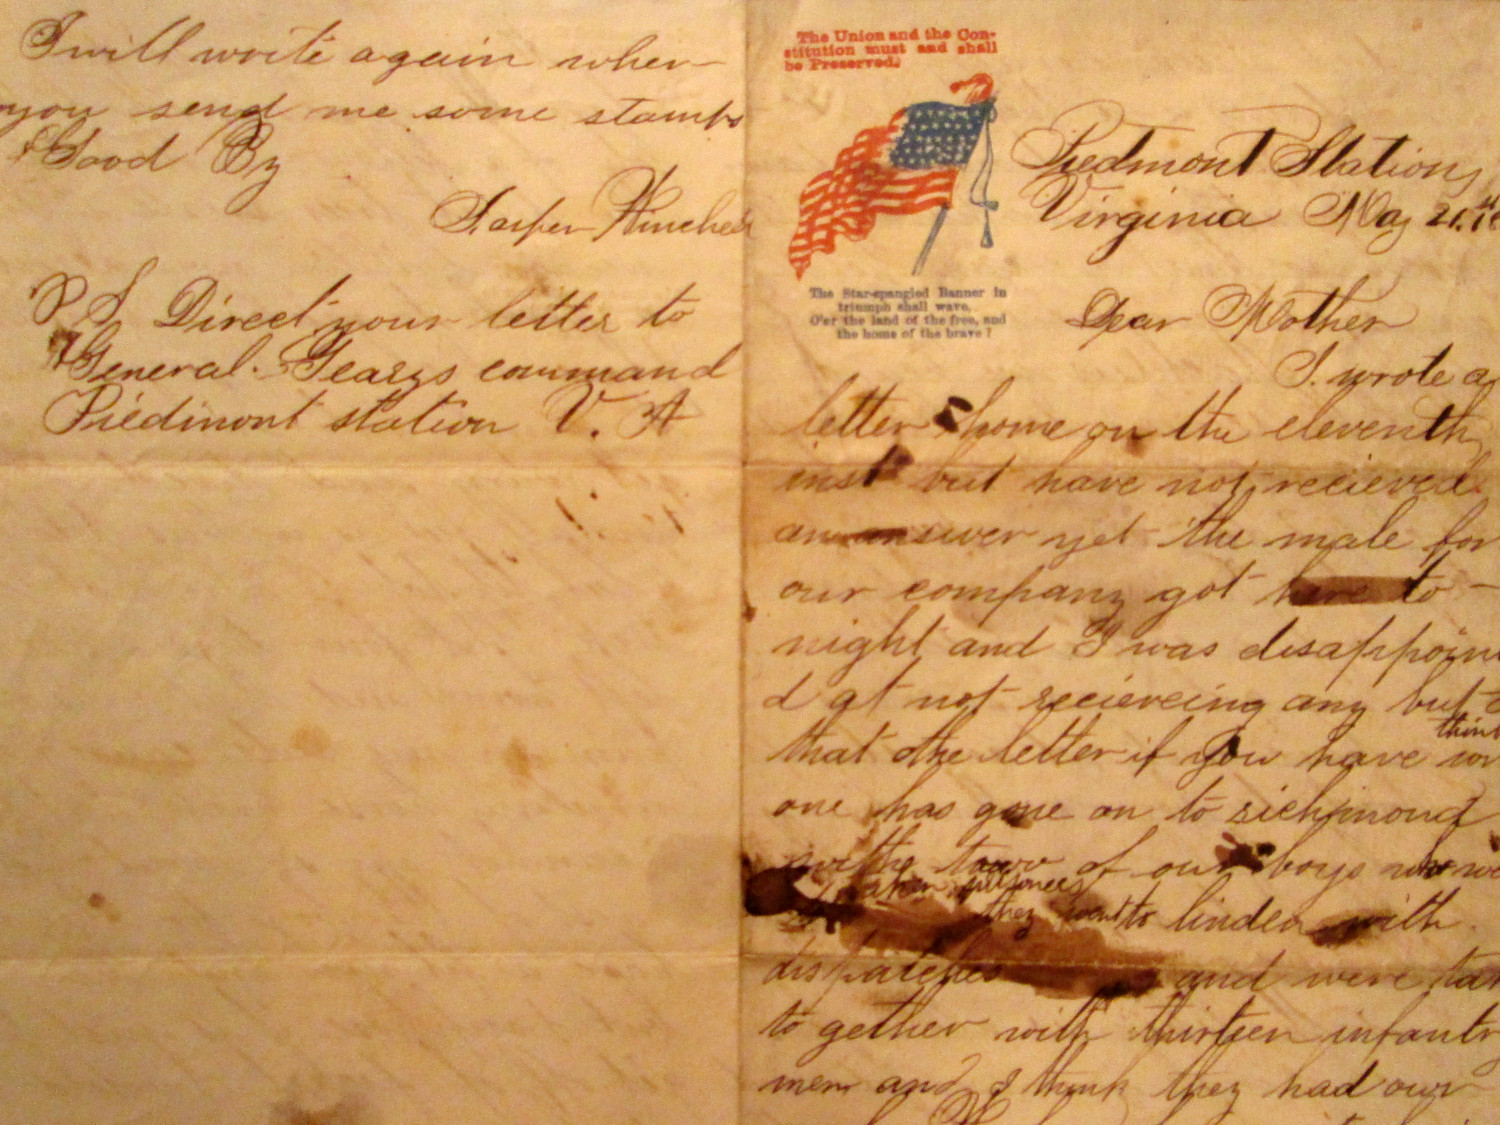 I will write again when
you send me some stamps
Good By
Jasper
P S Direct your letter to
General Gearys command
Piedimont station V. A
The Union and the Con-
stitution must and shall
be Preserved.
Piedmont Station,
Virginia May 21.st
The Star-spangled Banner in
triumph shall wave,
O'er the land of the free, and
the home of the brave!
Dear Mother
I wrote a
letter home on the eleventh
inst but have not recieved
an answer yet the male for
our company got here to
night and I was disappoint
d at not recieveing any but
think
that the letter if you have
one has gone on to richmond
the of our boys
taken prisoners
they went to linden with
dispatches and were
to gether with thirteen infantry
men and I think they had our